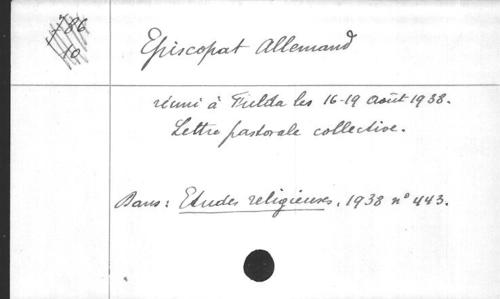 Episcopat Allemand
réuni à Fulda les 16-19 août 1938.
Lettre pastorale collective.
Dans : Etudes religieuses, 1938 n° 443.